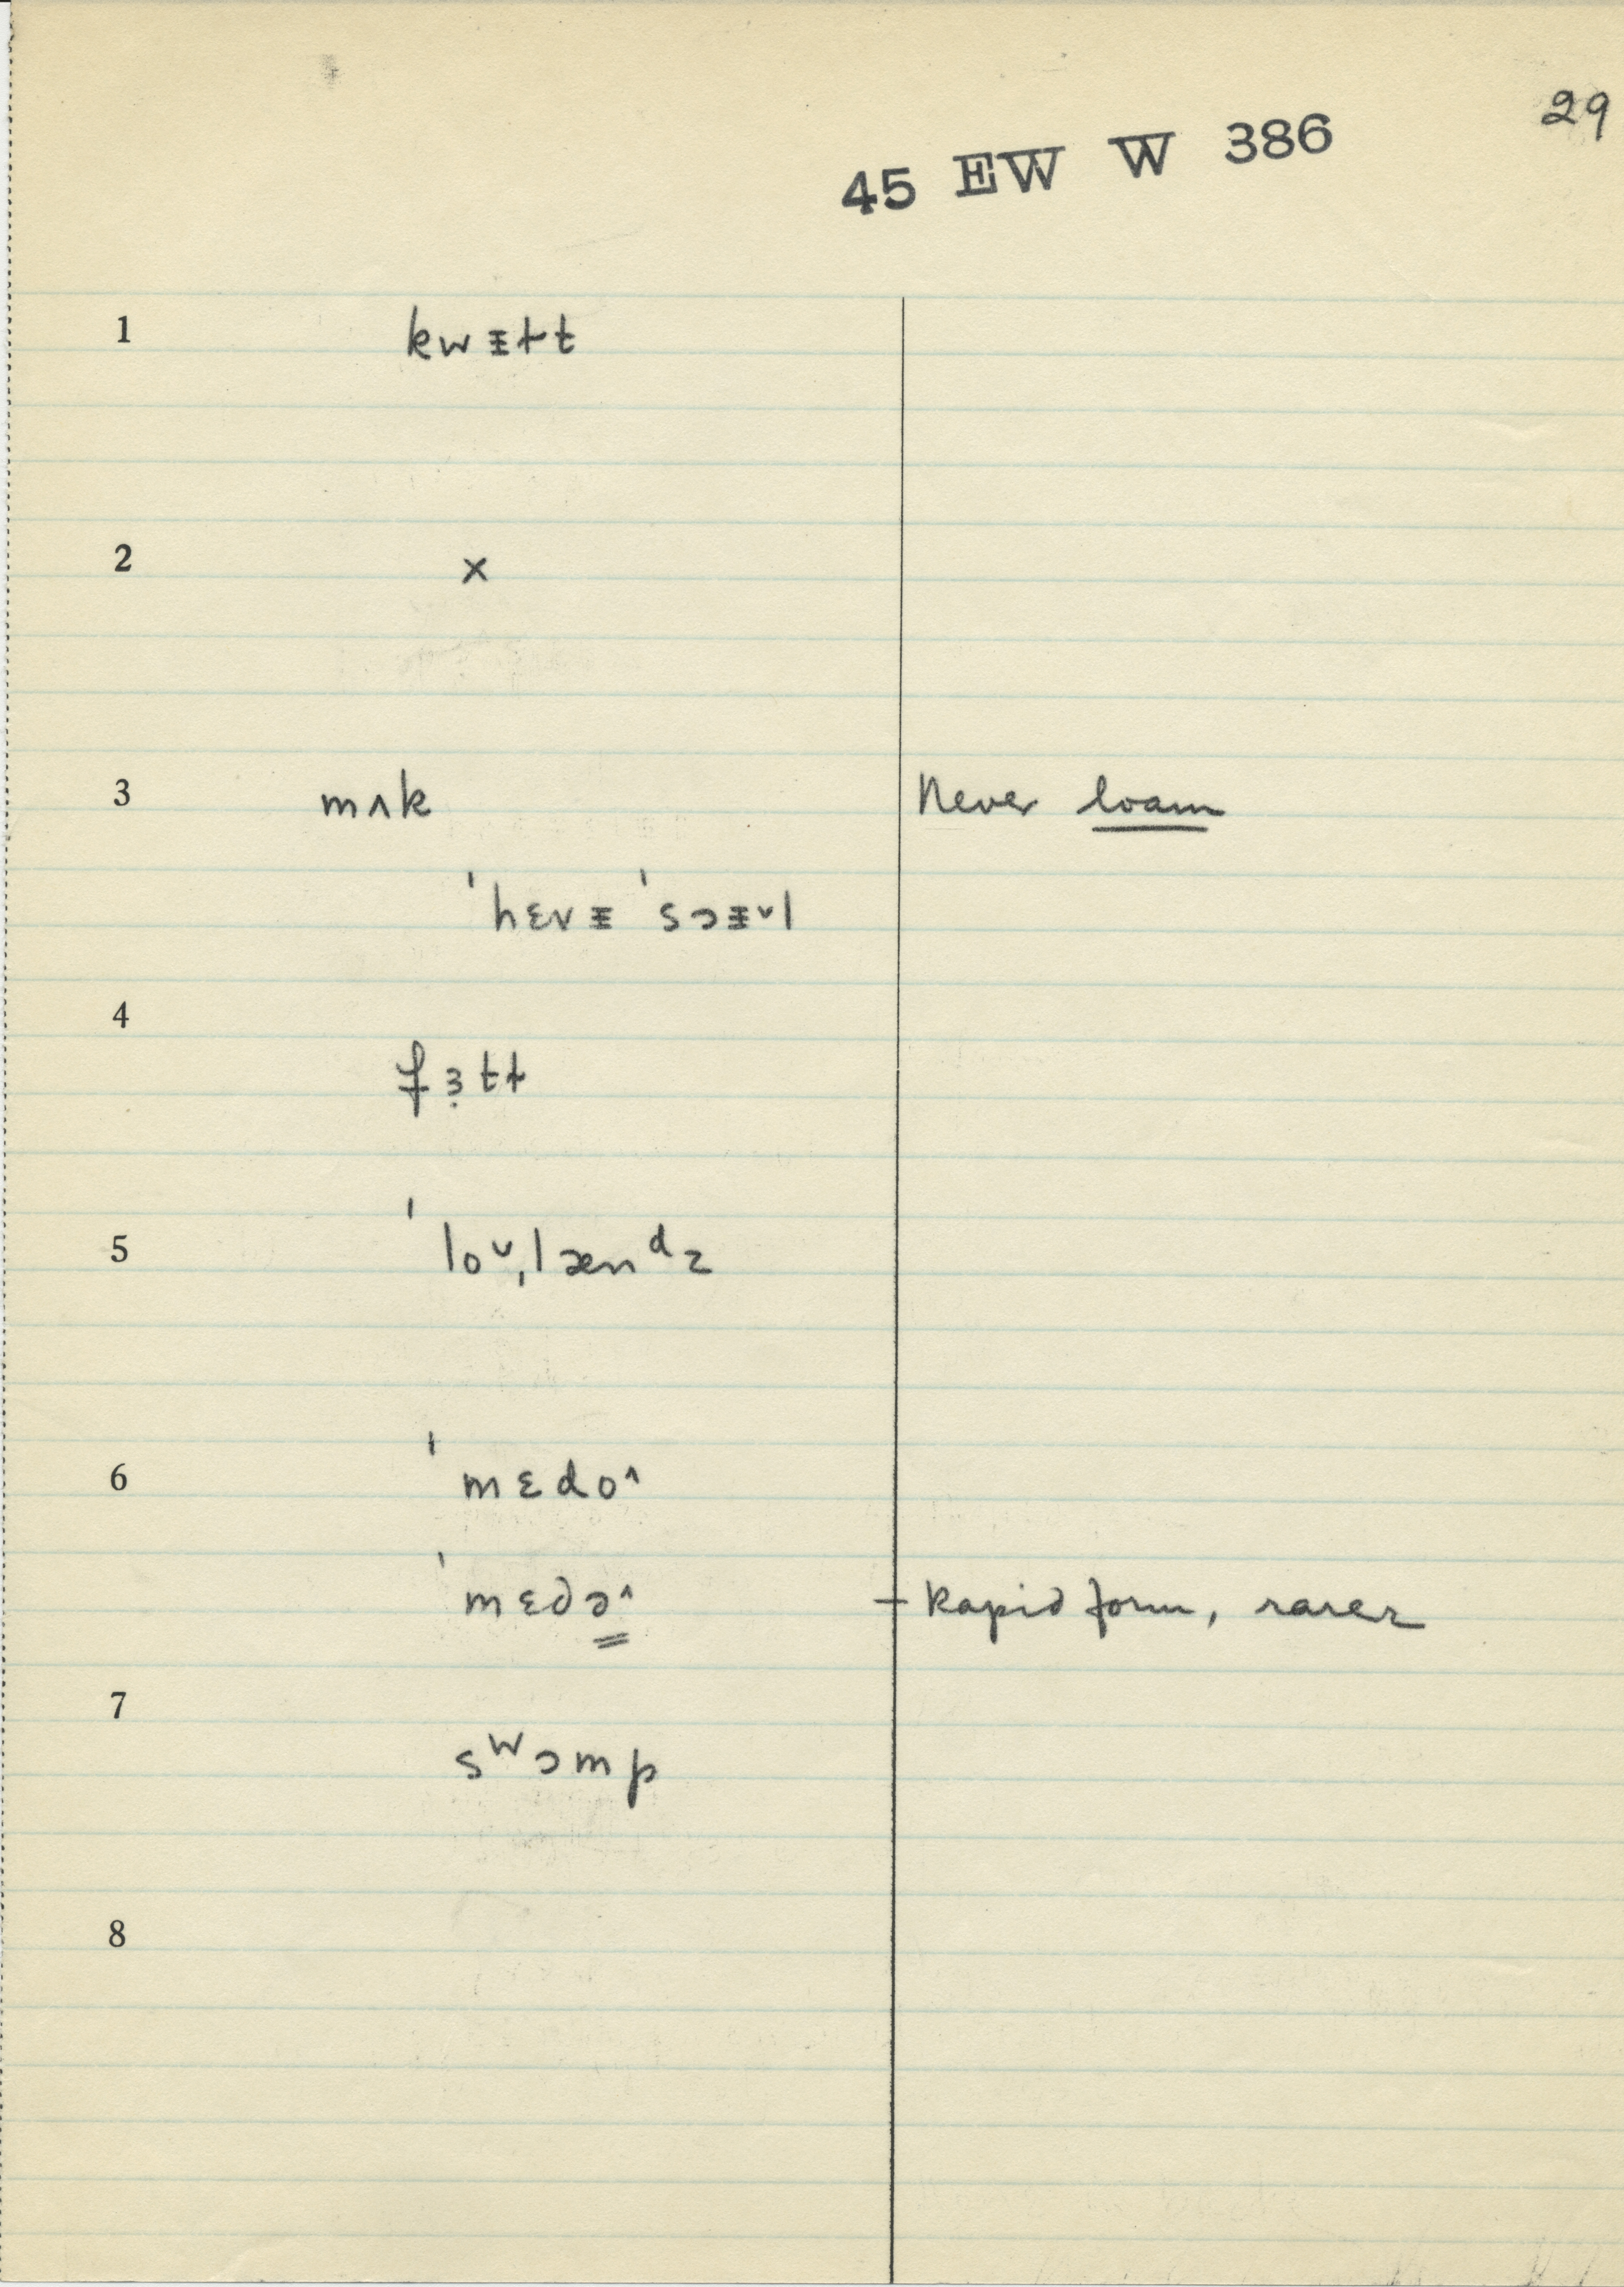 29
45 EW W 386
1 kwᵻɫt
2 x
3 mʌk Never loam
ˈhɛvᵻ ˈsɔᵻ˅l
4
fɜ̣tɫ
5 ˈlo˅ˌlænᵈz
6 ˈmɛdo^
ˈmɛdə^ + Rapid form, rarer
7
sᵂɔmp
8